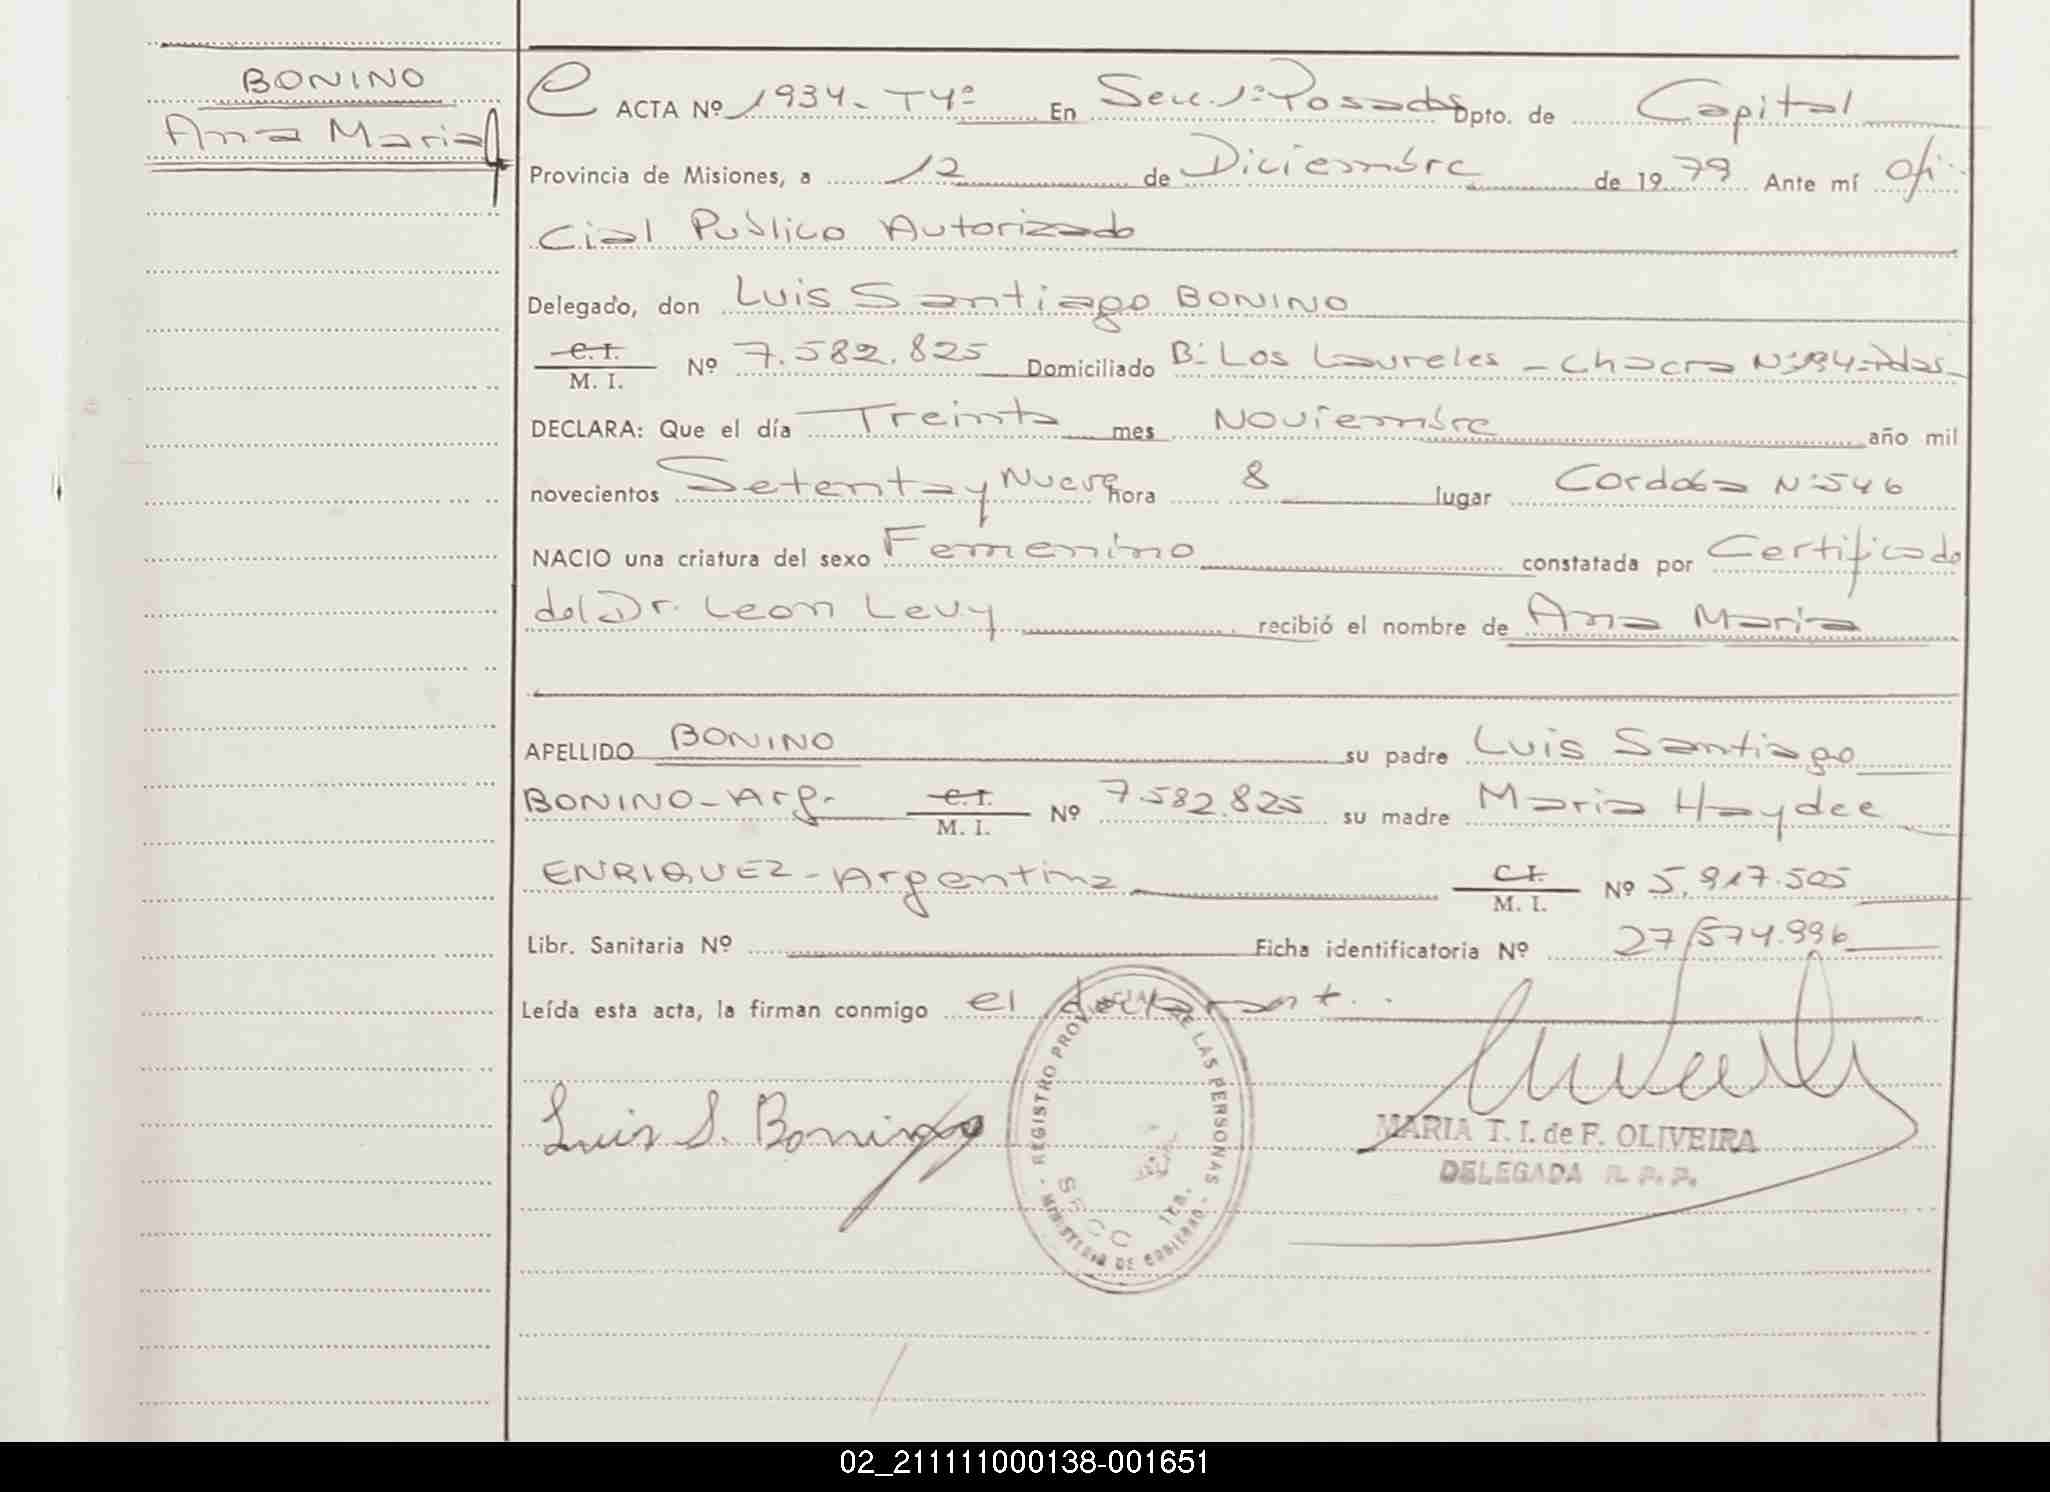 BONINO
Ana Maria
ACTA Nº 1934- T4º En Secc. 1º Posadas Dpto. de Capital
Provincia de Misiones, a 12 de Diciembre de 1979 Ante mí Ofi-
cial Público Autorizado
Delegado, don Luis Santiago BONINO
C. I. M. I. Nº 7.582.825 Domiciliado B: Los Laureles - Chacra Nº 194-Pdas-
DECLARA: Que el día Treinta mes Noviembre año mil
novecientos Setenta y Nueve hora 8 lugar Cordoba Nº 546
NACIO una criatura del sexo Femenino constatada por Certificado
del Dr. Leon Levy recibió el nombre de Ana Maria
APELLIDO BONINO su padre Luis Santiago
BONINO-Arg. C. I. M. I. Nº 7.582.825 su madre Maria Haydee
ENRIQUEZ-Argentina C. I. M. I. Nº 5.917.505
Libr. Sanitaria Nº Ficha identificatoria Nº 27.574.996
Leída esta acta, la firman conmigo el declarant..
Luis S. Bonino
REGISTRO PROVINCIAL DE LAS PERSONAS - MINISTERIO DE GOBIERNO -
SECC 1RA.
MARIA T. I. de F. OLIVEIRA
DELEGADA R. P. P.
02_211111000138-001651